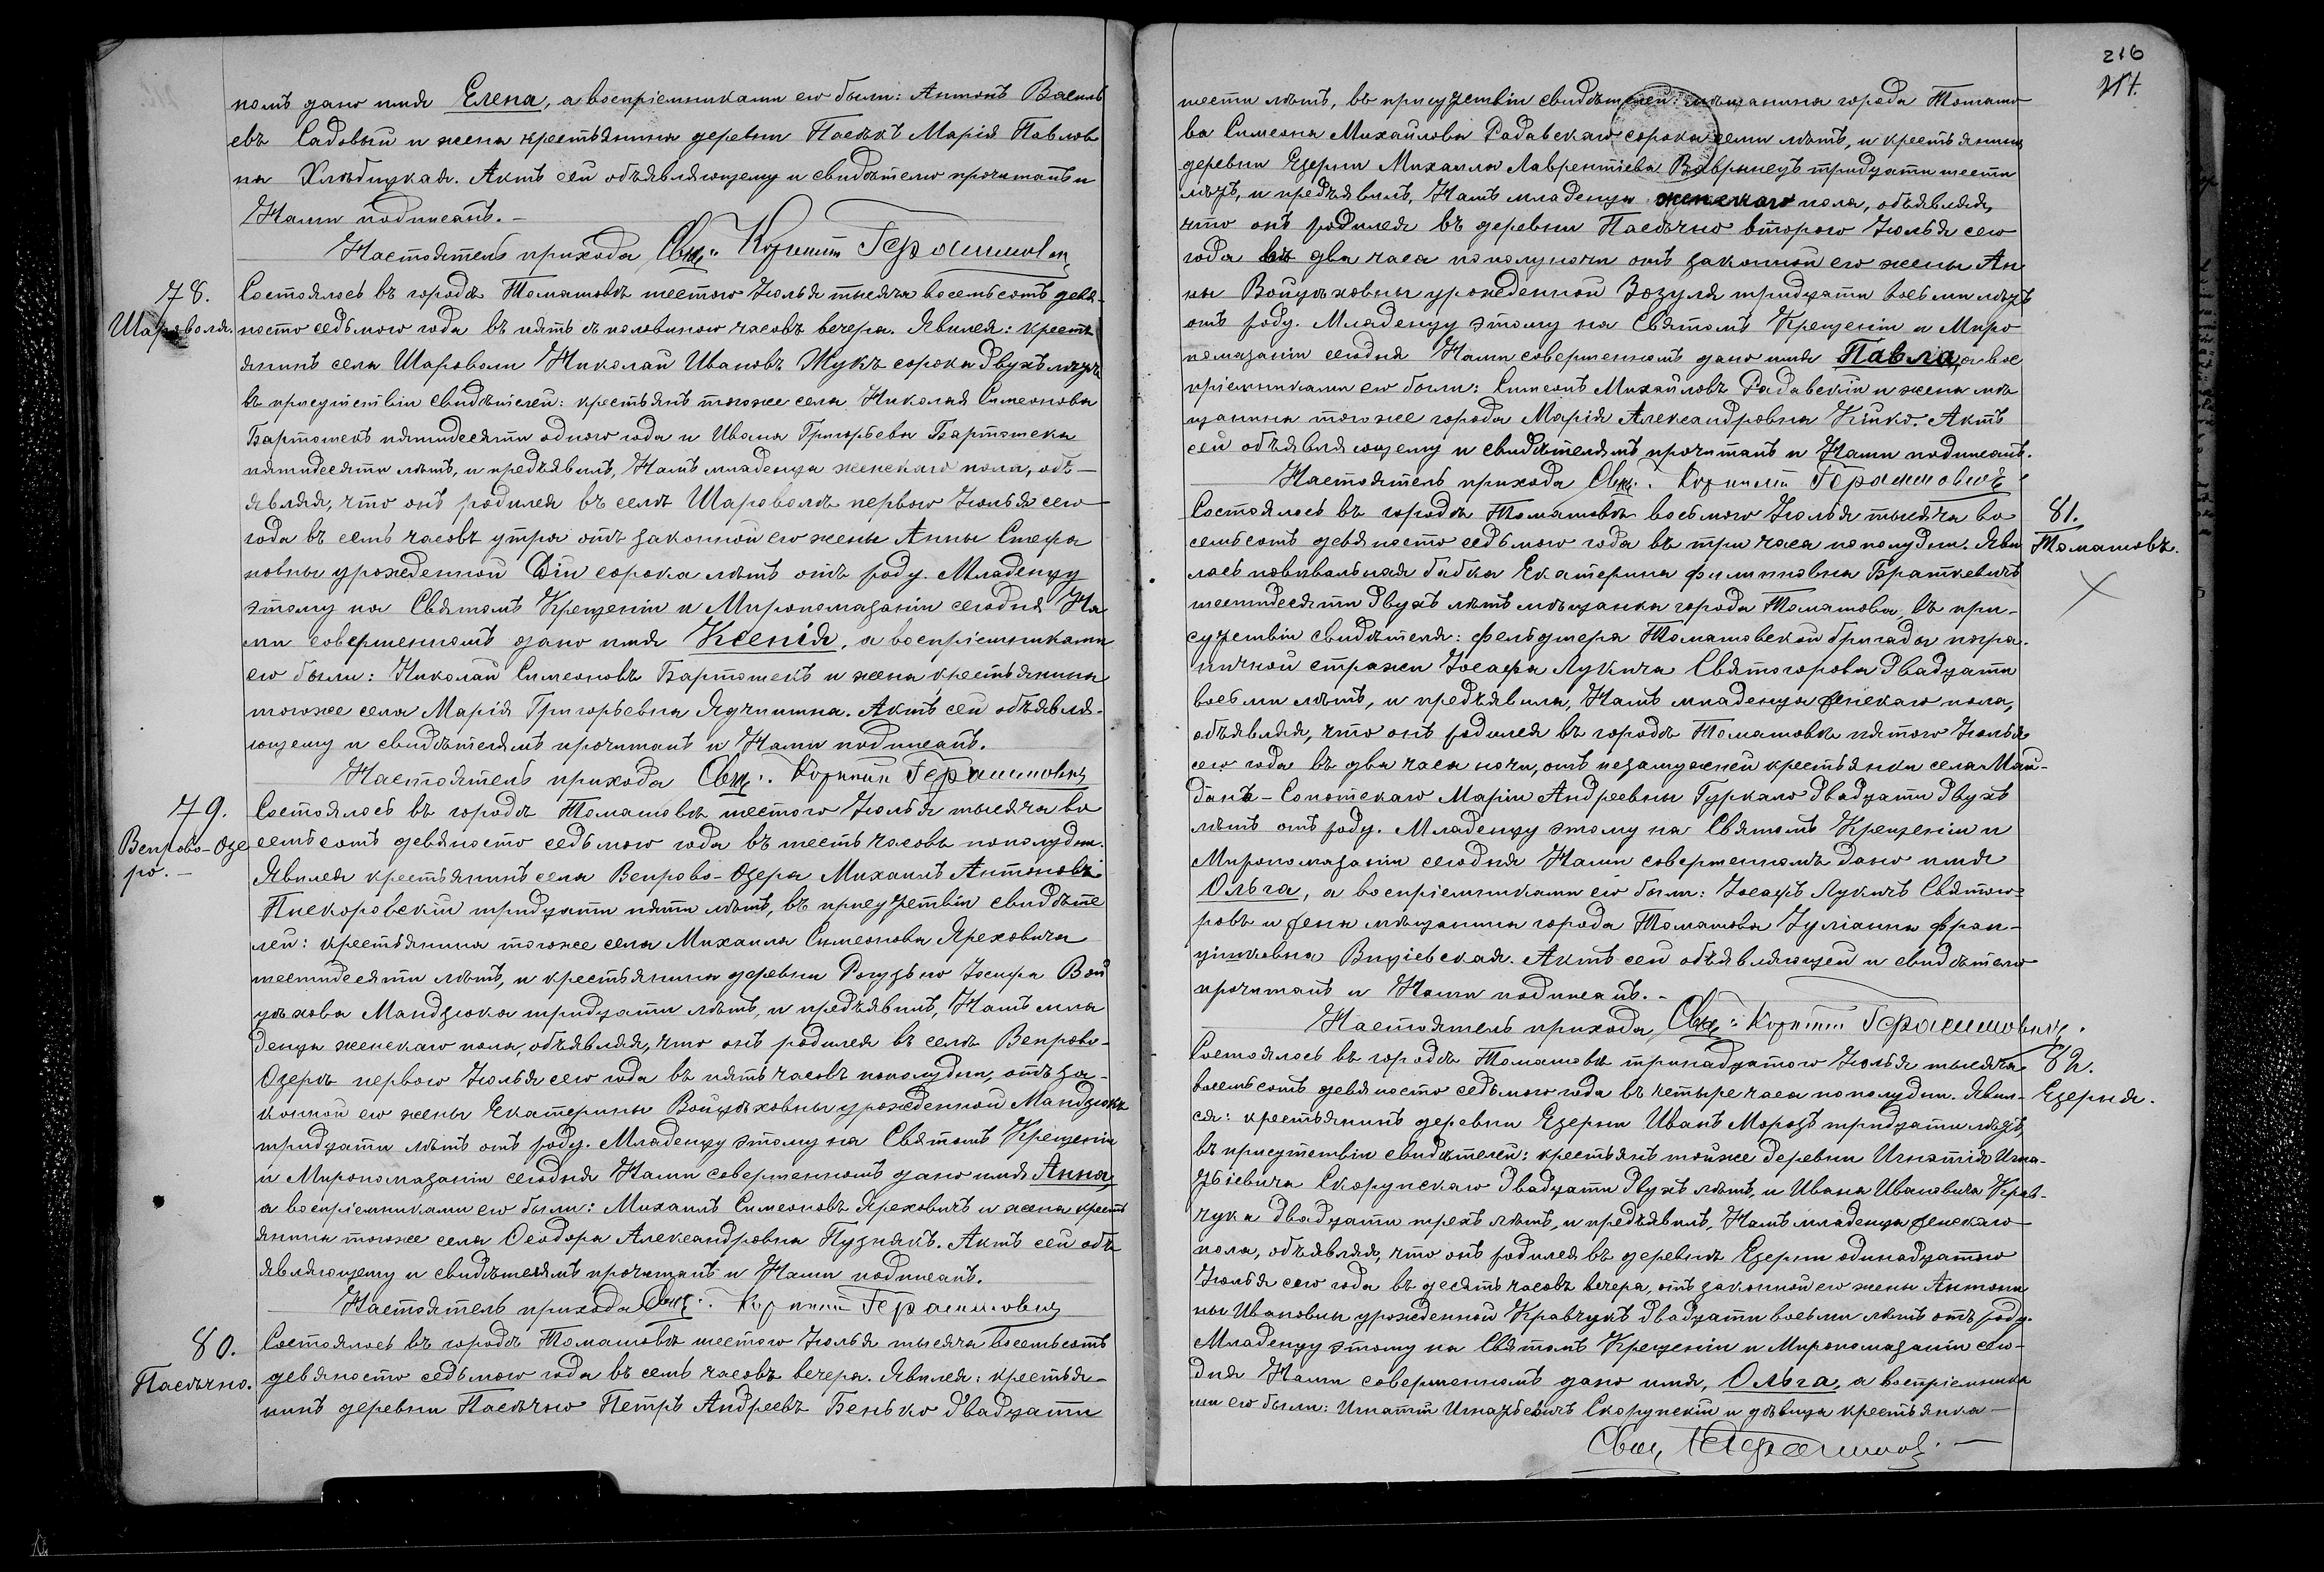 номъ дано имя Елена, а воспріемниками его были: Антонъ Василь
евъ Садовый и жена крестьянина деревни Пасѣкъ Марія Павлов
на Хлѣбицкая. Актъ сей объявляющему и свидѣтелю прочитанъ и
Нами подписанъ. –
Настоятель прихода Свщ: Корнилій Герасимович
78.
Шароволя.
Состоялось въ городѣ Томашовѣ шестого Іюлья тысяча восемьсотъ девя-
носто седьмого года въ пять съ половиною часовъ вечера. Явился: кресть
янинъ села Шароволи Николай Ивановъ Жукъ сорока двухъ лѣтъ
въ присутствіи свидѣтелей: крестьянъ тогоже села Николая Симеонова
Бартошекъ пятидесяти одного года и Ивана Григорьева Бартошека
пятидесяти лѣтъ, и предъявилъ, Намъ младенца женскаго пола, объ-
являя, что онъ родился въ селѣ Шароволѣ первого Іюлья сего
года въ семь часовъ утра отъ законной его жены Анны Стефа
новны урожденной сорока лѣтъ отъ роду. Младенцу
этому на Святомъ Крещеніи и Миропомазаніи сегодня На
ми совершенномъ дано имя Ксенія, а воспріемниками
его были: Николай Симеоновъ Бартошекъ и жена крестьянина
тогоже села Марія Григорьевна Ядчишина. Актъ сей объявля-
ющему и свидѣтелямъ прочитанъ и Нами подписанъ.
Настоятель прихода Свщ: Корнилій Герасимовичъ
79.
Вепрово-Озе
ро. –
Состоялось въ городѣ Томашовѣ шестого Іюлья тысяча во
семьсотъ девяносто седьмого года въ шесть часовъ пополудни.
Явился крестьянинъ села Вепрово-Озера Михаилъ Антоновъ
Пискоровскій тридцати пяти лѣтъ, въ присуцствіи свидѣте
лей: крестьянина тогоже села Михаила Симеонова Яреховича
шестидесяти лѣтъ, и крестьянина деревни Рогузьно Іосифа Вой
цѣхова Мандзюка тридцати лѣтъ, и предъявилъ, Намъ мла
денца женскаго пола, объявляя, что онъ родился въ селѣ Вепрово-
Озерѣ первого Іюлья сего года въ пять часовъ пополудни, отъ за-
конной его жены Екатерины Войцѣховны урожденной Мандзюкъ
тридцати лѣтъ отъ роду. Младенцу этому на Святомъ Крещеніи
и Миропомазаніи сегодня Нами совершенномъ дано имя Анна,
а воспріемниками его были: Михаилъ Симеоновъ Яреховичъ и жена кресть
янина тогоже села Ѳеодора Александровна Пузнякъ. Актъ сей объ
являющему и свидѣтелямъ прочитанъ и Нами подписанъ.
Настоятель прихода Свщ: Корнилій Герасимовичъ
80.
Пасѣчно.
Состоялось въ городѣ Томашовѣ шестого Іюлья тысяча восемьсотъ
девяносто седьмого года въ семь часовъ вечера. Явился: крестья-
нинъ деревни Пасѣчно Петръ Андреевъ Бенько двадцати
216
шести лѣтъ, въ присуцствіи свидѣтелей: мѣщанина города Томашо
ва Симеона Михайлова Радавскаго сорока семи лѣтъ, и крестьянина
деревни Езерни Михаила Лаврентіева Ваврынецъ тридцати шести
лѣтъ, и предъявилъ, Намъ младенца женскаго пола, объявляя,
что онъ родился въ деревни Пасѣчно второго Іюлья сего
года въ два часа пополуночи отъ законной его жены Ан
ны Войцѣховны урожденной Зозуля тридцати восьми лѣтъ
отъ роду. Младенцу этому на Святомъ Крещеніи и Миро
помазаніи сегодня Нами совершенномъ дано имя Павла, а вос
пріемниками его были: Симеонъ Михайловъ Радавскій и жена мѣ
щанина тогоже города Марія Александровна Кицко. Актъ
сей объявляющему и свидѣтелямъ прочитанъ и Нами подписанъ.
Настоятель прихода Свщ: Корнилій Герасимовичъ
81.
Томашовъ.
Состоялось въ городѣ Томашовѣ восьмого Іюлья тысяча во
семьсотъ девяносто седьмого года въ три часа пополудни. Яви
лась повивальная бабка Екатерина Филипповна Браткевичъ
шестидесяти двухъ лѣтъ мѣщанка города Томашова, въ при-
суцствіи свидѣтеля: фельдшера Томашовской бригады погра-
ничной стражи Іосафа Лукича Святогорова двадцати
восьми лѣтъ, и предъявила, Намъ младенца женскаго пола,
объявляя, что онъ родился въ городѣ Томашовѣ пятого Іюлья
сего года въ два часа ночи, отъ незамужней крестьянки села Май-
данъ-Сопотскаго Маріи Андреевны Гуркало двадцати двухъ
лѣтъ отъ роду. Младенцу этому на Святомъ Крещеніи и
Миропомазаніи сегодня Нами совершенномъ дано имя
Ольга, а воспріемниками его были: Іосафъ Лукичъ Святого-
ровъ и жена мѣщанина города Томашова Іуліанна Фран-
цишковна Визіевская. Актъ сей объявляющей и свидѣтелю
прочитанъ и Нами подписанъ. –
Настоятель прихода, Свщ: Корнилій Герасимовичъ.
82.
Езерня.
Состоялось въ городѣ Томашовѣ тринадцатого Іюлья тысяча
восемьсотъ девяносто седьмого года въ четыре часа пополудни. Явил-
ся: крестьянинъ деревни Езерни Иванъ Морозъ тридцати лѣтъ,
въ присутствіи свидѣтелей: крестьянъ тойже деревни Игнатія Игна-
тьевича Скорупскаго двадцати двухъ лѣтъ, и Ивана Ивановича Крав-
чука двадцати трехъ лѣтъ, и предъявилъ, Намъ младенца женскаго
пола, объявляя, что онъ родился въ деревнѣ Езерни одинадцатого
Іюлья сего года въ десять часовъ вечера, отъ законной его жены Антони
ны Ивановны урожденной Кравчукъ двадцати восьми лѣтъ отъ роду.
Младенцу этому на Святомъ Крещеніи и Миропомазаніи сего-
дня Нами совершенномъ дано имя, Ольга, а воспріемника
ми его были: Игнатій Игнатьевичъ Скорупскій и дѣвица крестьянка –
Свщ, КГерасимов. –